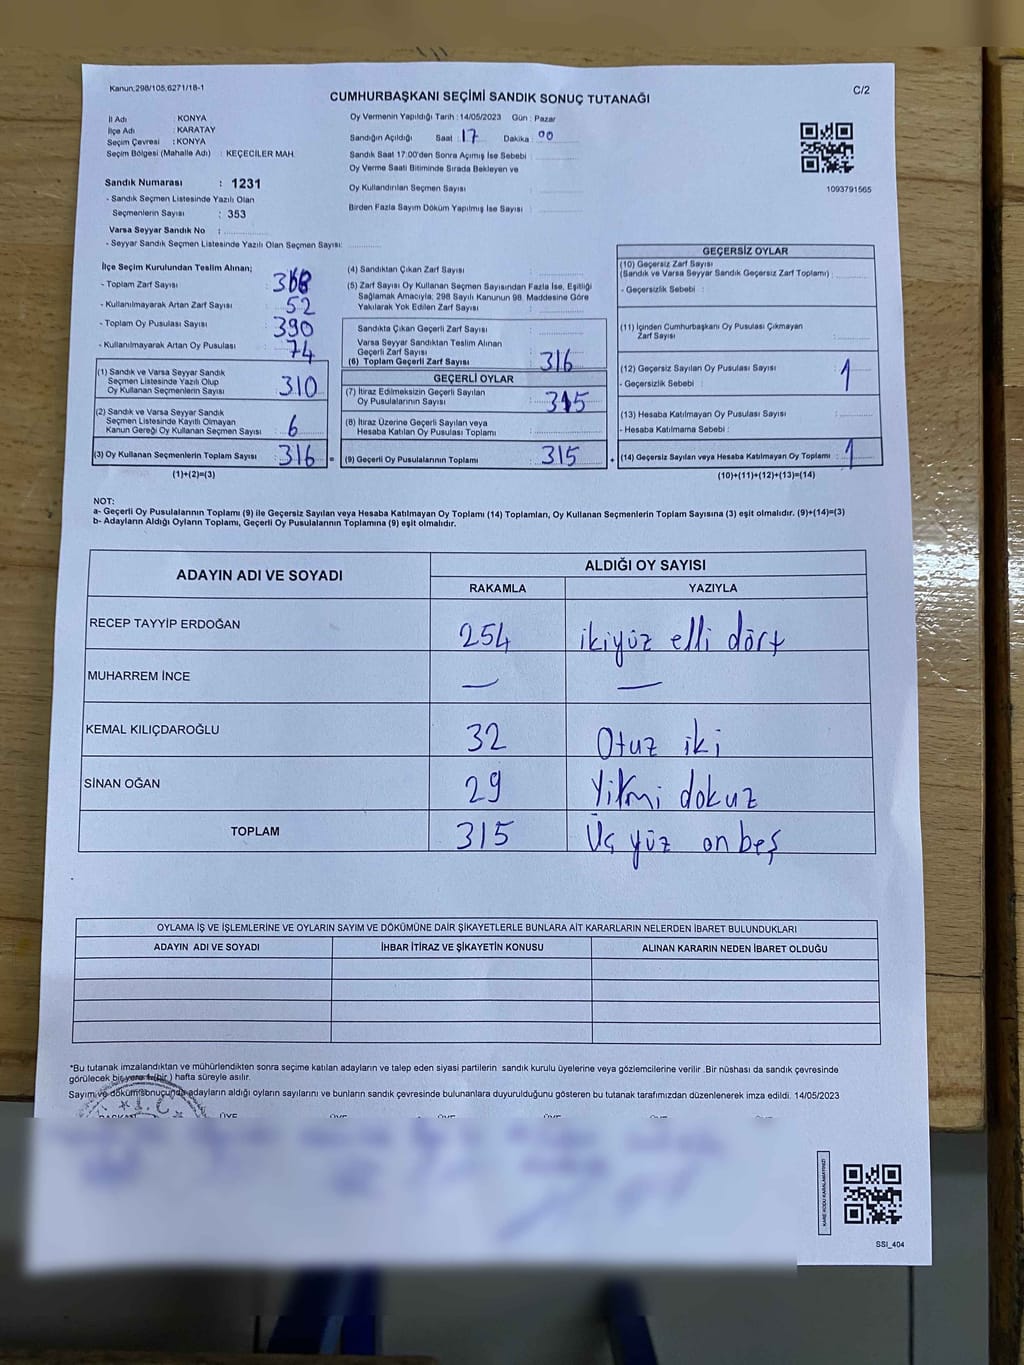 Kanun,298/105,6271/18-1
C/2
CUMHURBAŞKANI SEÇİMİ SANDIK SONUÇ TUTANAĞI
İl Adı : KONYA
İlçe Adı : KARATAY
Seçim Çevresi : KONYA
Seçim Bölgesi (Mahalle Adı) : KEÇECİLER MAH.
Sandık Numarası : 1231
- Sandık Seçmen Listesinde Yazılı Olan
Seçmenlerin Sayısı : 353
Varsa Seyyar Sandık No :
- Seyyar Sandık Seçmen Listesinde Yazılı Olan Seçmen Sayısı:
Oy Vermenin Yapıldığı Tarih : 14/05/2023 Gün : Pazar
Sandığın Açıldığı Saat : 17 Dakika : 00
Sandık Saat 17:00'den Sonra Açımış İse Sebebi :
Oy Verme Saati Bitiminde Sırada Bekleyen ve
Oy Kullandırılan Seçmen Sayısı :
Birden Fazla Sayım Döküm Yapılmış İse Sayısı :
1093791565
İlçe Seçim Kurulundan Teslim Alınan;
- Toplam Zarf Sayısı : 368
- Kullanılmayarak Artan Zarf Sayısı : 52
- Toplam Oy Pusulası Sayısı : 390
- Kullanılmayarak Artan Oy Pusulası : 74
(1) Sandık ve Varsa Seyyar Sandık
Seçmen Listesinde Yazılı Olup
Oy Kullanan Seçmenlerin Sayısı : 310
(2) Sandık ve Varsa Seyyar Sandık
Seçmen Listesinde Kayıtlı Olmayan
Kanun Gereği Oy Kullanan Seçmen Sayısı : 6
(3) Oy Kullanan Seçmenlerin Toplam Sayısı : 316 =
(1)+(2)=(3)
(4) Sandıktan Çıkan Zarf Sayısı :
(5) Zarf Sayısı Oy Kullanan Seçmen Sayısından Fazla İse, Eşitliği
Sağlamak Amacıyla; 298 Sayılı Kanunun 98. Maddesine Göre
Yakılarak Yok Edilen Zarf Sayısı :
Sandıkta Çıkan Geçerli Zarf Sayısı :
Varsa Seyyar Sandıktan Teslim Alınan
Geçerli Zarf Sayısı :
(6) Toplam Geçerli Zarf Sayısı : 316
GEÇERLİ OYLAR
(7) İtiraz Edilmeksizin Geçerli Sayılan
Oy Pusulalarının Sayısı : 315
(8) İtiraz Üzerine Geçerli Sayılan veya
Hesaba Katılan Oy Pusulası Toplamı :
(9) Geçerli Oy Pusulalarının Toplamı : 315 +
GEÇERSİZ OYLAR
(10) Geçersiz Zarf Sayısı
(Sandık ve Varsa Seyyar Sandık Geçersiz Zarf Toplamı) :
- Geçersizlik Sebebi :
(11) İçinden Cumhurbaşkanı Oy Pusulası Çıkmayan
Zarf Sayısı :
(12) Geçersiz Sayılan Oy Pusulası Sayısı : 1
- Geçersizlik Sebebi :
(13) Hesaba Katılmayan Oy Pusulası Sayısı :
- Hesaba Katılmama Sebebi :
(14) Geçersiz Sayılan veya Hesaba Katılmayan Oy Toplamı : 1
(10)+(11)+(12)+(13)=(14)
NOT:
a- Geçerli Oy Pusulalarının Toplamı (9) ile Geçersiz Sayılan veya Hesaba Katılmayan Oy Toplamı (14) Toplamları, Oy Kullanan Seçmenlerin Toplam Sayısına (3) eşit olmalıdır. (9)+(14)=(3)
b- Adayların Aldığı Oyların Toplamı, Geçerli Oy Pusulalarının Toplamına (9) eşit olmalıdır.
ADAYIN ADI VE SOYADI
ALDIĞI OY SAYISI
RAKAMLA YAZIYLA
RECEP TAYYİP ERDOĞAN 254 ikiyüz elli dört
MUHARREM İNCE — —
KEMAL KILIÇDAROĞLU 32 Otuz iki
SİNAN OĞAN 29 Yirmi dokuz
TOPLAM 315 Üç yüz onbeş
OYLAMA İŞ VE İŞLEMLERİNE VE OYLARIN SAYIM VE DÖKÜMÜNE DAİR ŞİKAYETLERLE BUNLARA AİT KARARLARIN NELERDEN İBARET BULUNDUKLARI
ADAYIN ADI VE SOYADI İHBAR İTİRAZ VE ŞİKAYETİN KONUSU ALINAN KARARIN NEDEN İBARET OLDUĞU
*Bu tutanak imzalandıktan ve mühürlendikten sonra seçime katılan adayların ve talep eden siyasi partilerin sandık kurulu üyelerine veya gözlemcilerine verilir .Bir nüshası da sandık çevresinde
görülecek bir yere 1(bir ) hafta süreyle asılır.
Sayım ve döküm sonuçunda adayların aldığı oyların sayılarını ve bunların sandık çevresinde bulunanlara duyurulduğunu gösteren bu tutanak tarafımızdan düzenlenerek imza edildi. 14/05/2023
T.C.
KARE KODU KARALAMAYINIZ!
SSI_404